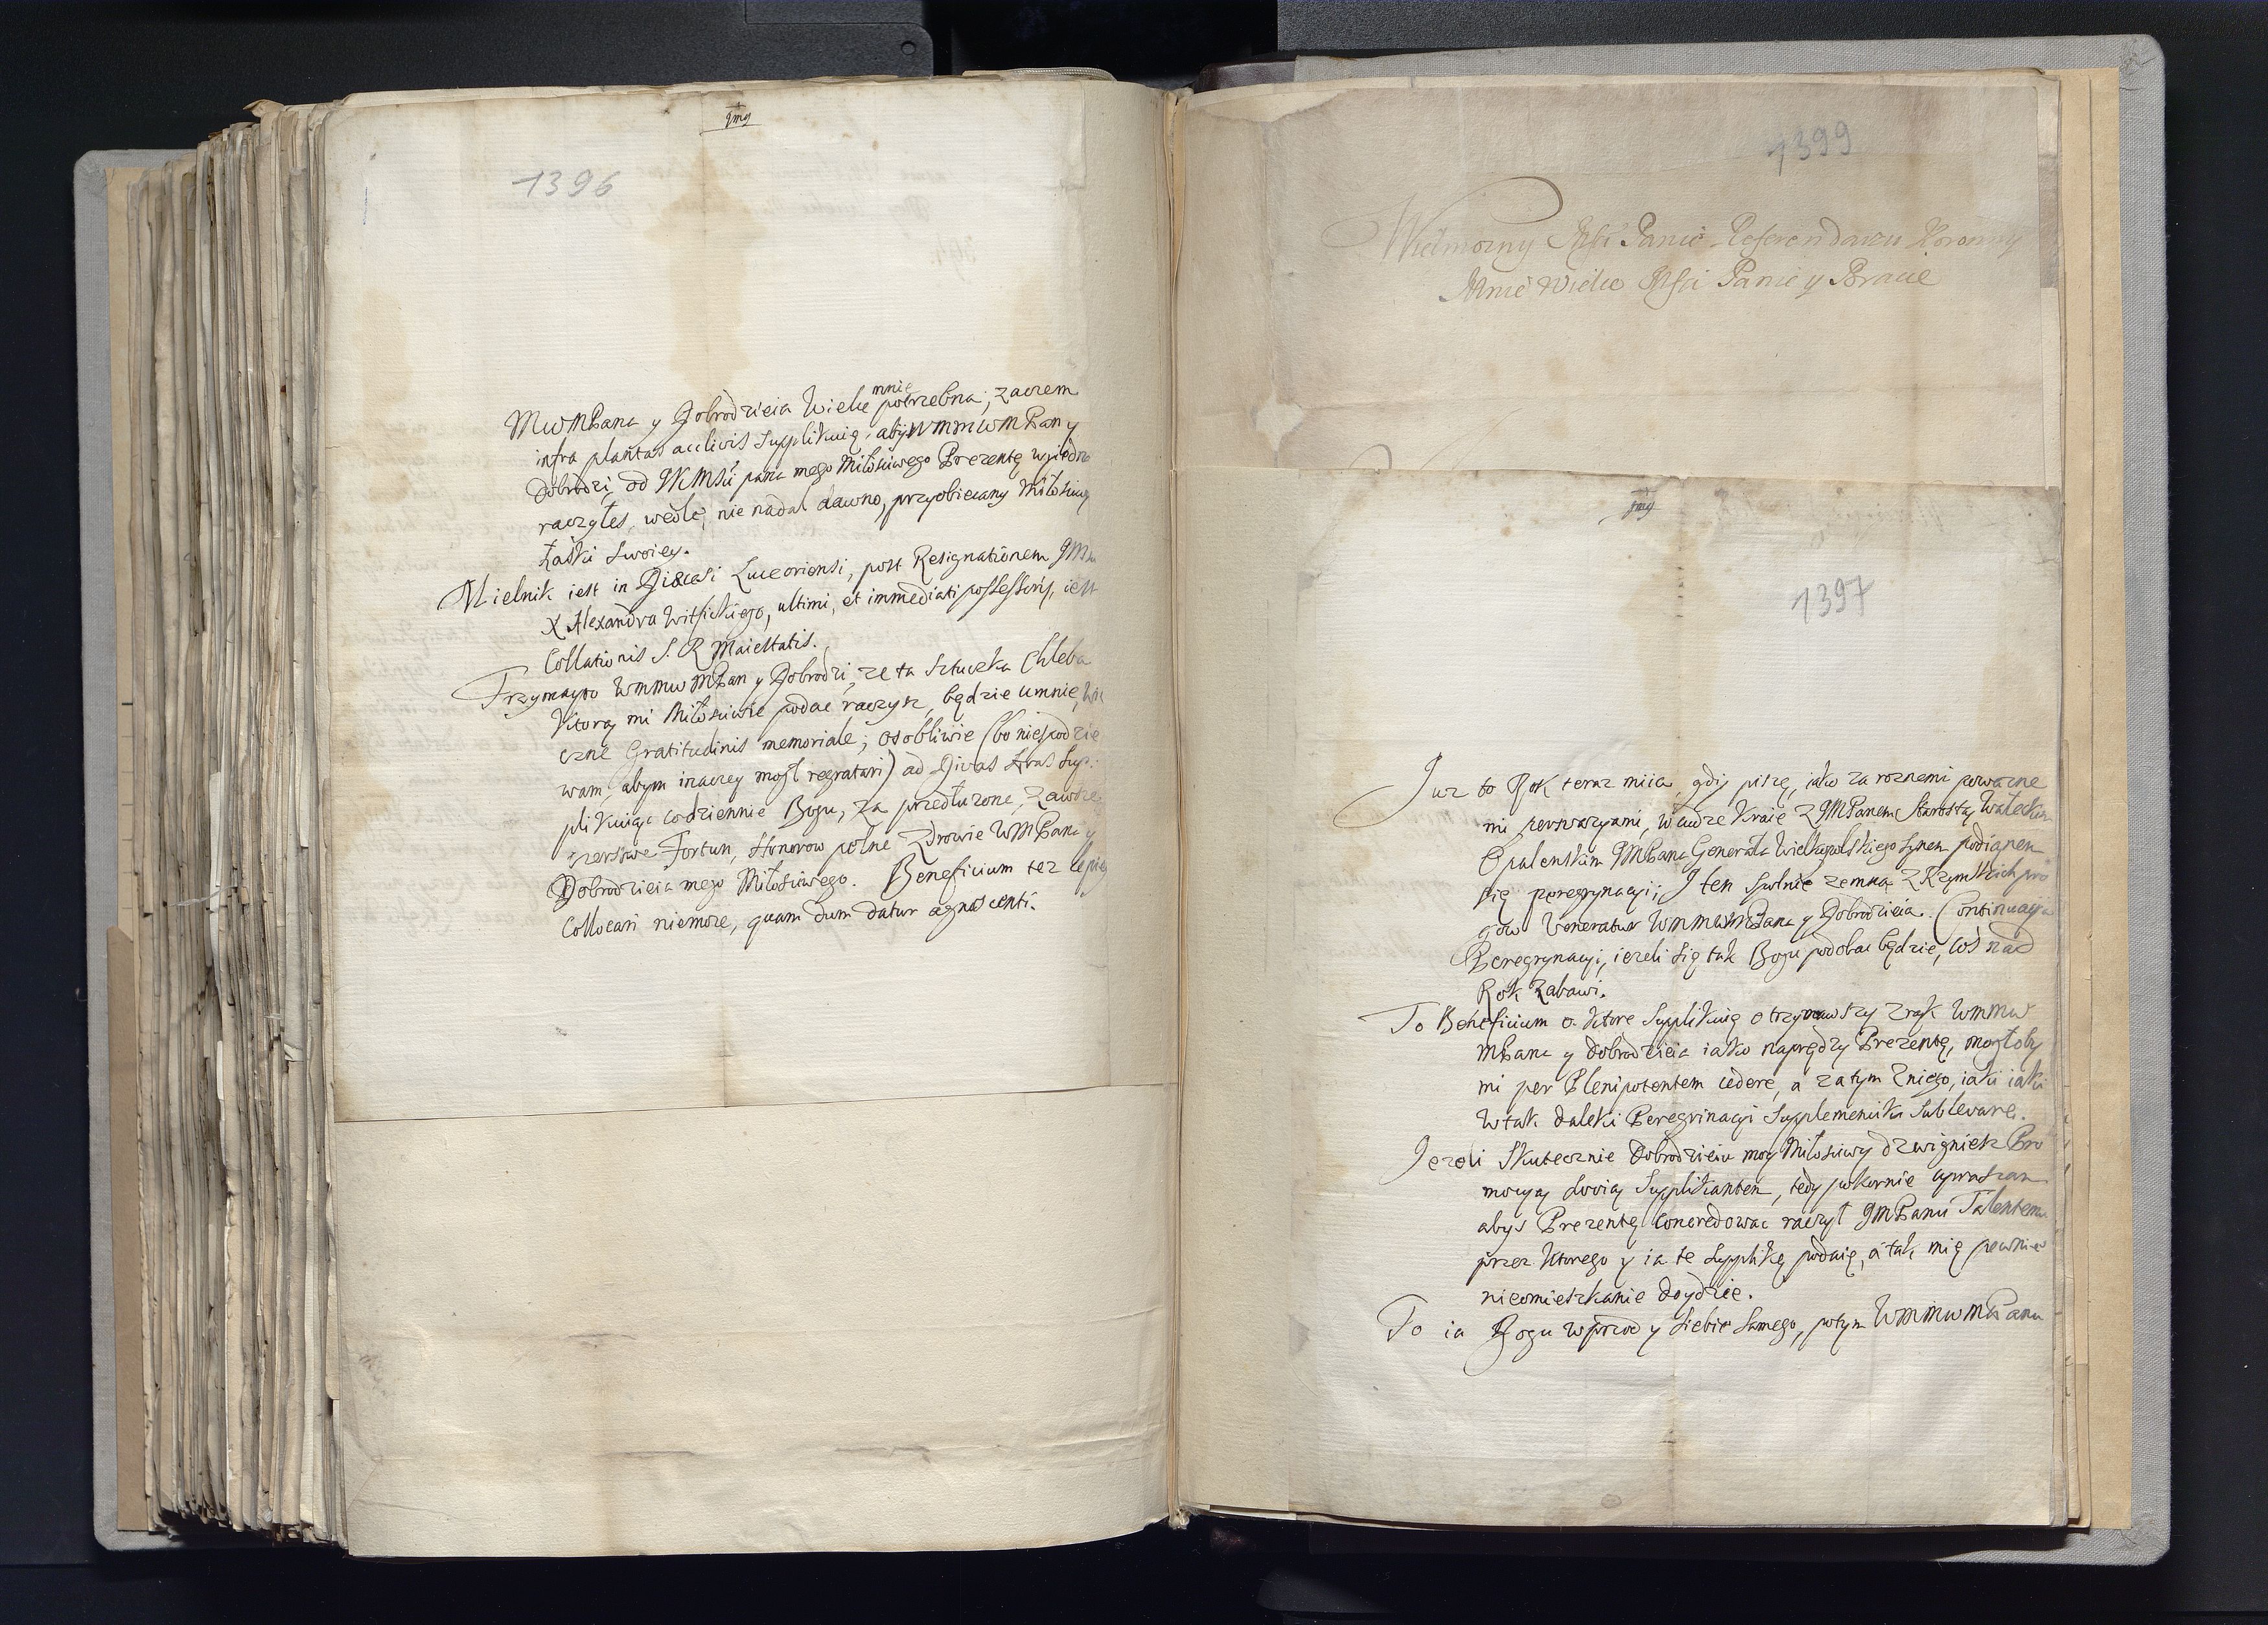 Jmg
1396
MwMPana y Dobrodzieia Wielce mnie potrzebna; zaczem
infra plantas acclivis supplikuię, abyWmmwmPan y
Dobrodzi, od JKMsći pana mego Miłosciwego Prezentę wyiedna
raczyłes, wedle, nie nadal dawno, przyobiecany Miłosciwy
Łaski Swoiey.
Mielnik iest in Diæcesi Luceoriensi, post Resignationem JM
X Alexandra Witlickiego, ultimi, et immediati possessoris, iest
Collationis S. R Maiestatis.
Trzymayto WmmwmPan y Dobrodzi, ze ta Sztuczka Chleba
ktorą mi Miłosciwie podac raczysz, będzie umnie, wie
czne Gratitudinis memoriale; osobliwie (bo niespodzie
wam, abym inaczey mogł regratari) ad Divas Aras Sup:
plikuiąc codziennie Bogu, za przedłuzone, zawsze
czerstwe Fortun, Honorow pełne Zdrowie WMPana y
Dobrodzieia mego Miłosciwego. Beneficium tez lepiey
Collocari niemoze, quam dum datur agnoscenti.
1399
Wielmozny Msci Panie Referendarzu Koronny
Mnie Wielce Msci Panie y Bracie
Jmg
1397
Juz to Rok teraz miia, gdy piszę, iako za roznemi powazne
mi perswazyami, w cudze Kraie z JMPanem Starostą Wałeckim
Opalenskim JMPana Generała Wielkopolskiego Synem podiąłem
się peregrynacyi; I ten społnie zemną z Rzymskich pro
gow Veneratur WmmwmPana y Dobrodzieia. Continuacya
Peregrynacyi, iezeli się tak Bogu podobac będzie, cos nad
Rok zabawi.
To Beneficium o ktore Supplikuię otrzymawszy z rąk Wmmw
mPana y Dobrodzieia iako naprędzy Prezentę, mogłoby
mi per Plenipotentem cedere, a zatym z niego, iaki iaki
w tak daleki Peregrinacyi Supplemencik Sublevare.
Jezeli Skutecznie Dobrodzieiu moy Miłosciwy dzwigniesz Pro
mocyą Swoią Supplikanten, tedy pokornie upraszam
abys Prezentę concredowac raczył JmPanu Talentemu
przez ktorego y ia te Supplikę podaię, a tak mię pewnie
nieomieszkanie doydzie.
To ia Bogu wprzod y Siebie Samego, potym WmmwmPanu